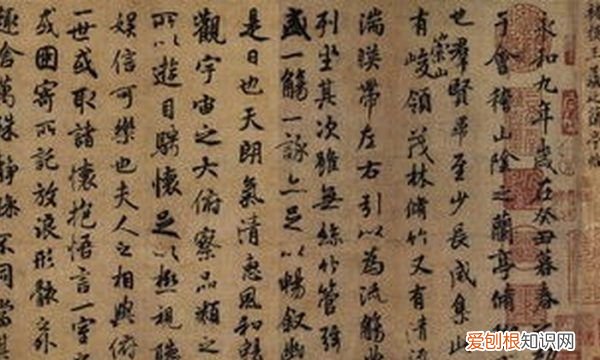 褚模王羲之蘭亭帖
永和九年歲在癸丑暮春
于會稽山陰之蘭亭脩
也羣賢畢至少長咸集此
崇山
有峻領茂林脩竹又有清
湍暎帶左右引以為流觴
列坐其次雖無絲竹管弦
盛一觴一詠亦足以暢敘幽
是日也天朗氣清惠風和暢
觀宇宙之大俯察品類之
所以遊目騁懷足以極視聽
娛信可樂也夫人之相與俯
一世或取諸懷抱悟言一室
或因寄所託放浪形骸之外
趣舍萬殊靜躁不同當其
爱刨根知识网